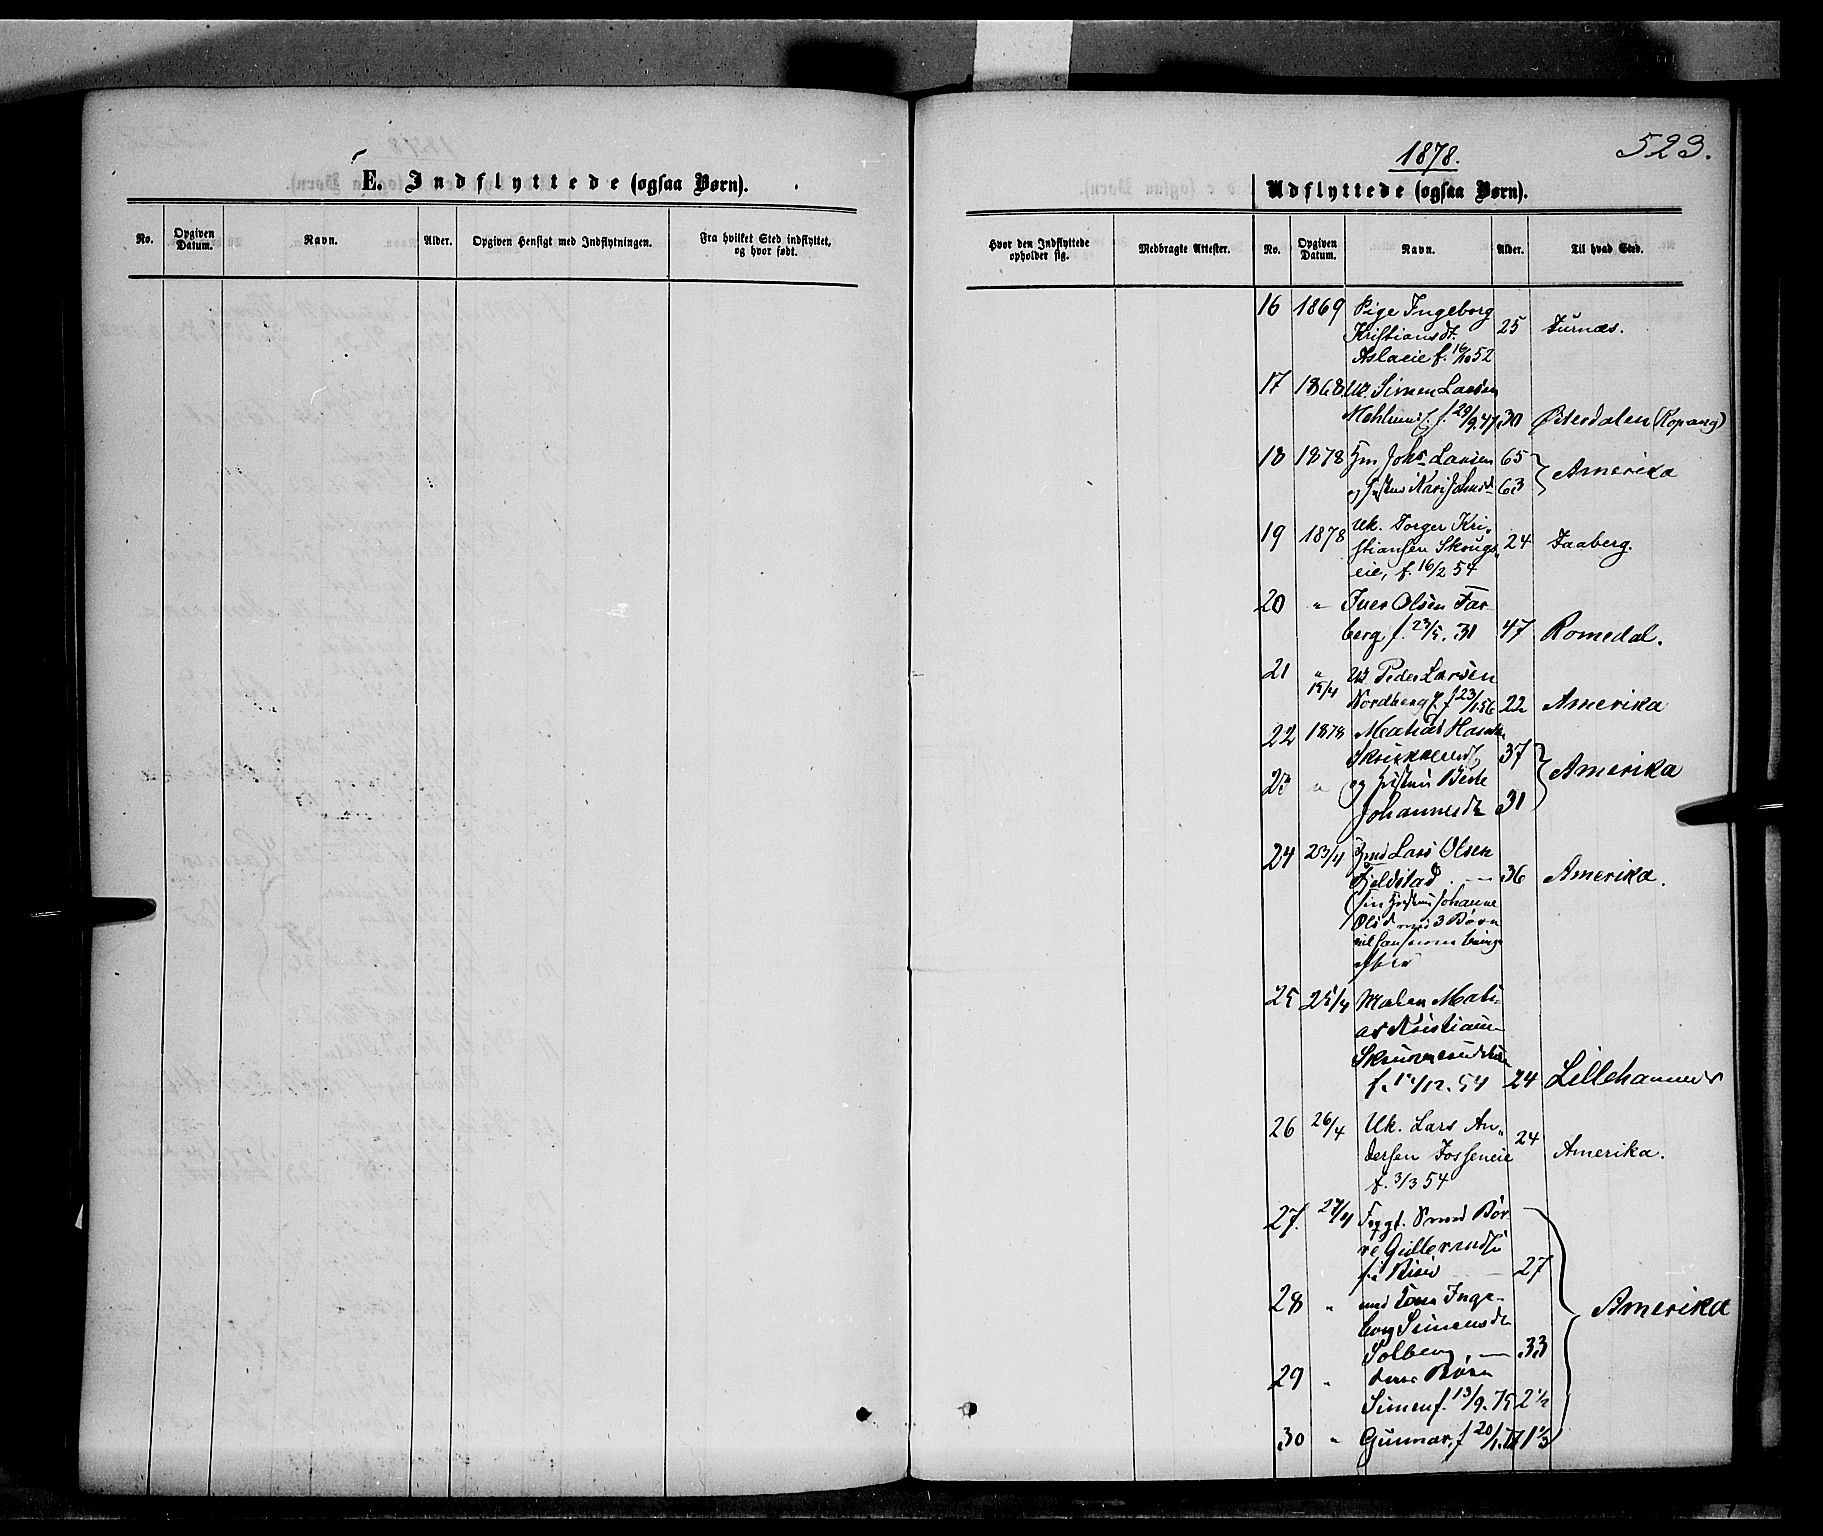 E. Indflyttede (ogsaa Børn).
No.
Opgiven Datum.
Navn.
Alder.
Opgiven Hensigt med Indflytningen.
Fra hvilket Sted indflyttet, og hvor født.
523.
1878.
Udflyttede (ogsaa Børn).
Hvor den Indflyttede opholder sig.
Medbragte Attester.
No.
Opgiven Datum.
Navn.
Alder.
Til hvad Sted.
16 1869 Pige Ingeborg
Kristiansdt. 25 Furnæs.
Aslaeie f. 16/10 52
17 1868 Uk. Simen Larsen
Mehlum f. 29/9.47 30 Østerdalen (Kopang)
18 1878 Gm Johs Larsen 65
og Hustru Kari Johnsd 63 Amerika
19 1878 Uk. Torger Kri-
stiansen Skougs- 24 Faaberg.
eie, f. 16/2 54
20 " Iver Olsen Far
berg f. 23/5. 31 47 Romedal.
21 " Uk Peder Larsen
15/4 Nordberg f. 23/1.56 22 Amerika
22 1878 Matias
37
23 " og Hustru Berte Amerika
Johannesdt 31
24 23/4 Gmd Lars Olsen
Fjeldstad 36 Amerika.
(sin Hustru Johanne
Olsd med 3 Børn
25 25/4 Maler Mati-
as Kristiansen
f. /12. 54 24 Lillehammer
26 26/4 Uk. Lars An-
dersen Fosseneie 24 Amerika.
f. 3/3 54
27. 27/4 Smed Bør-
re Gulbrandsen
27
28 " med Kone Inge-
borg Simensdt
Solberg, 33 Amerika
29 " deres Børn
Simen f. 13/9. 75 2 1/2
30 " Gunnar, f 20/1. 77 1 1/3